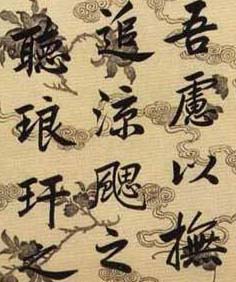 吾慮以撫
追涼颸之
聽琅玕之